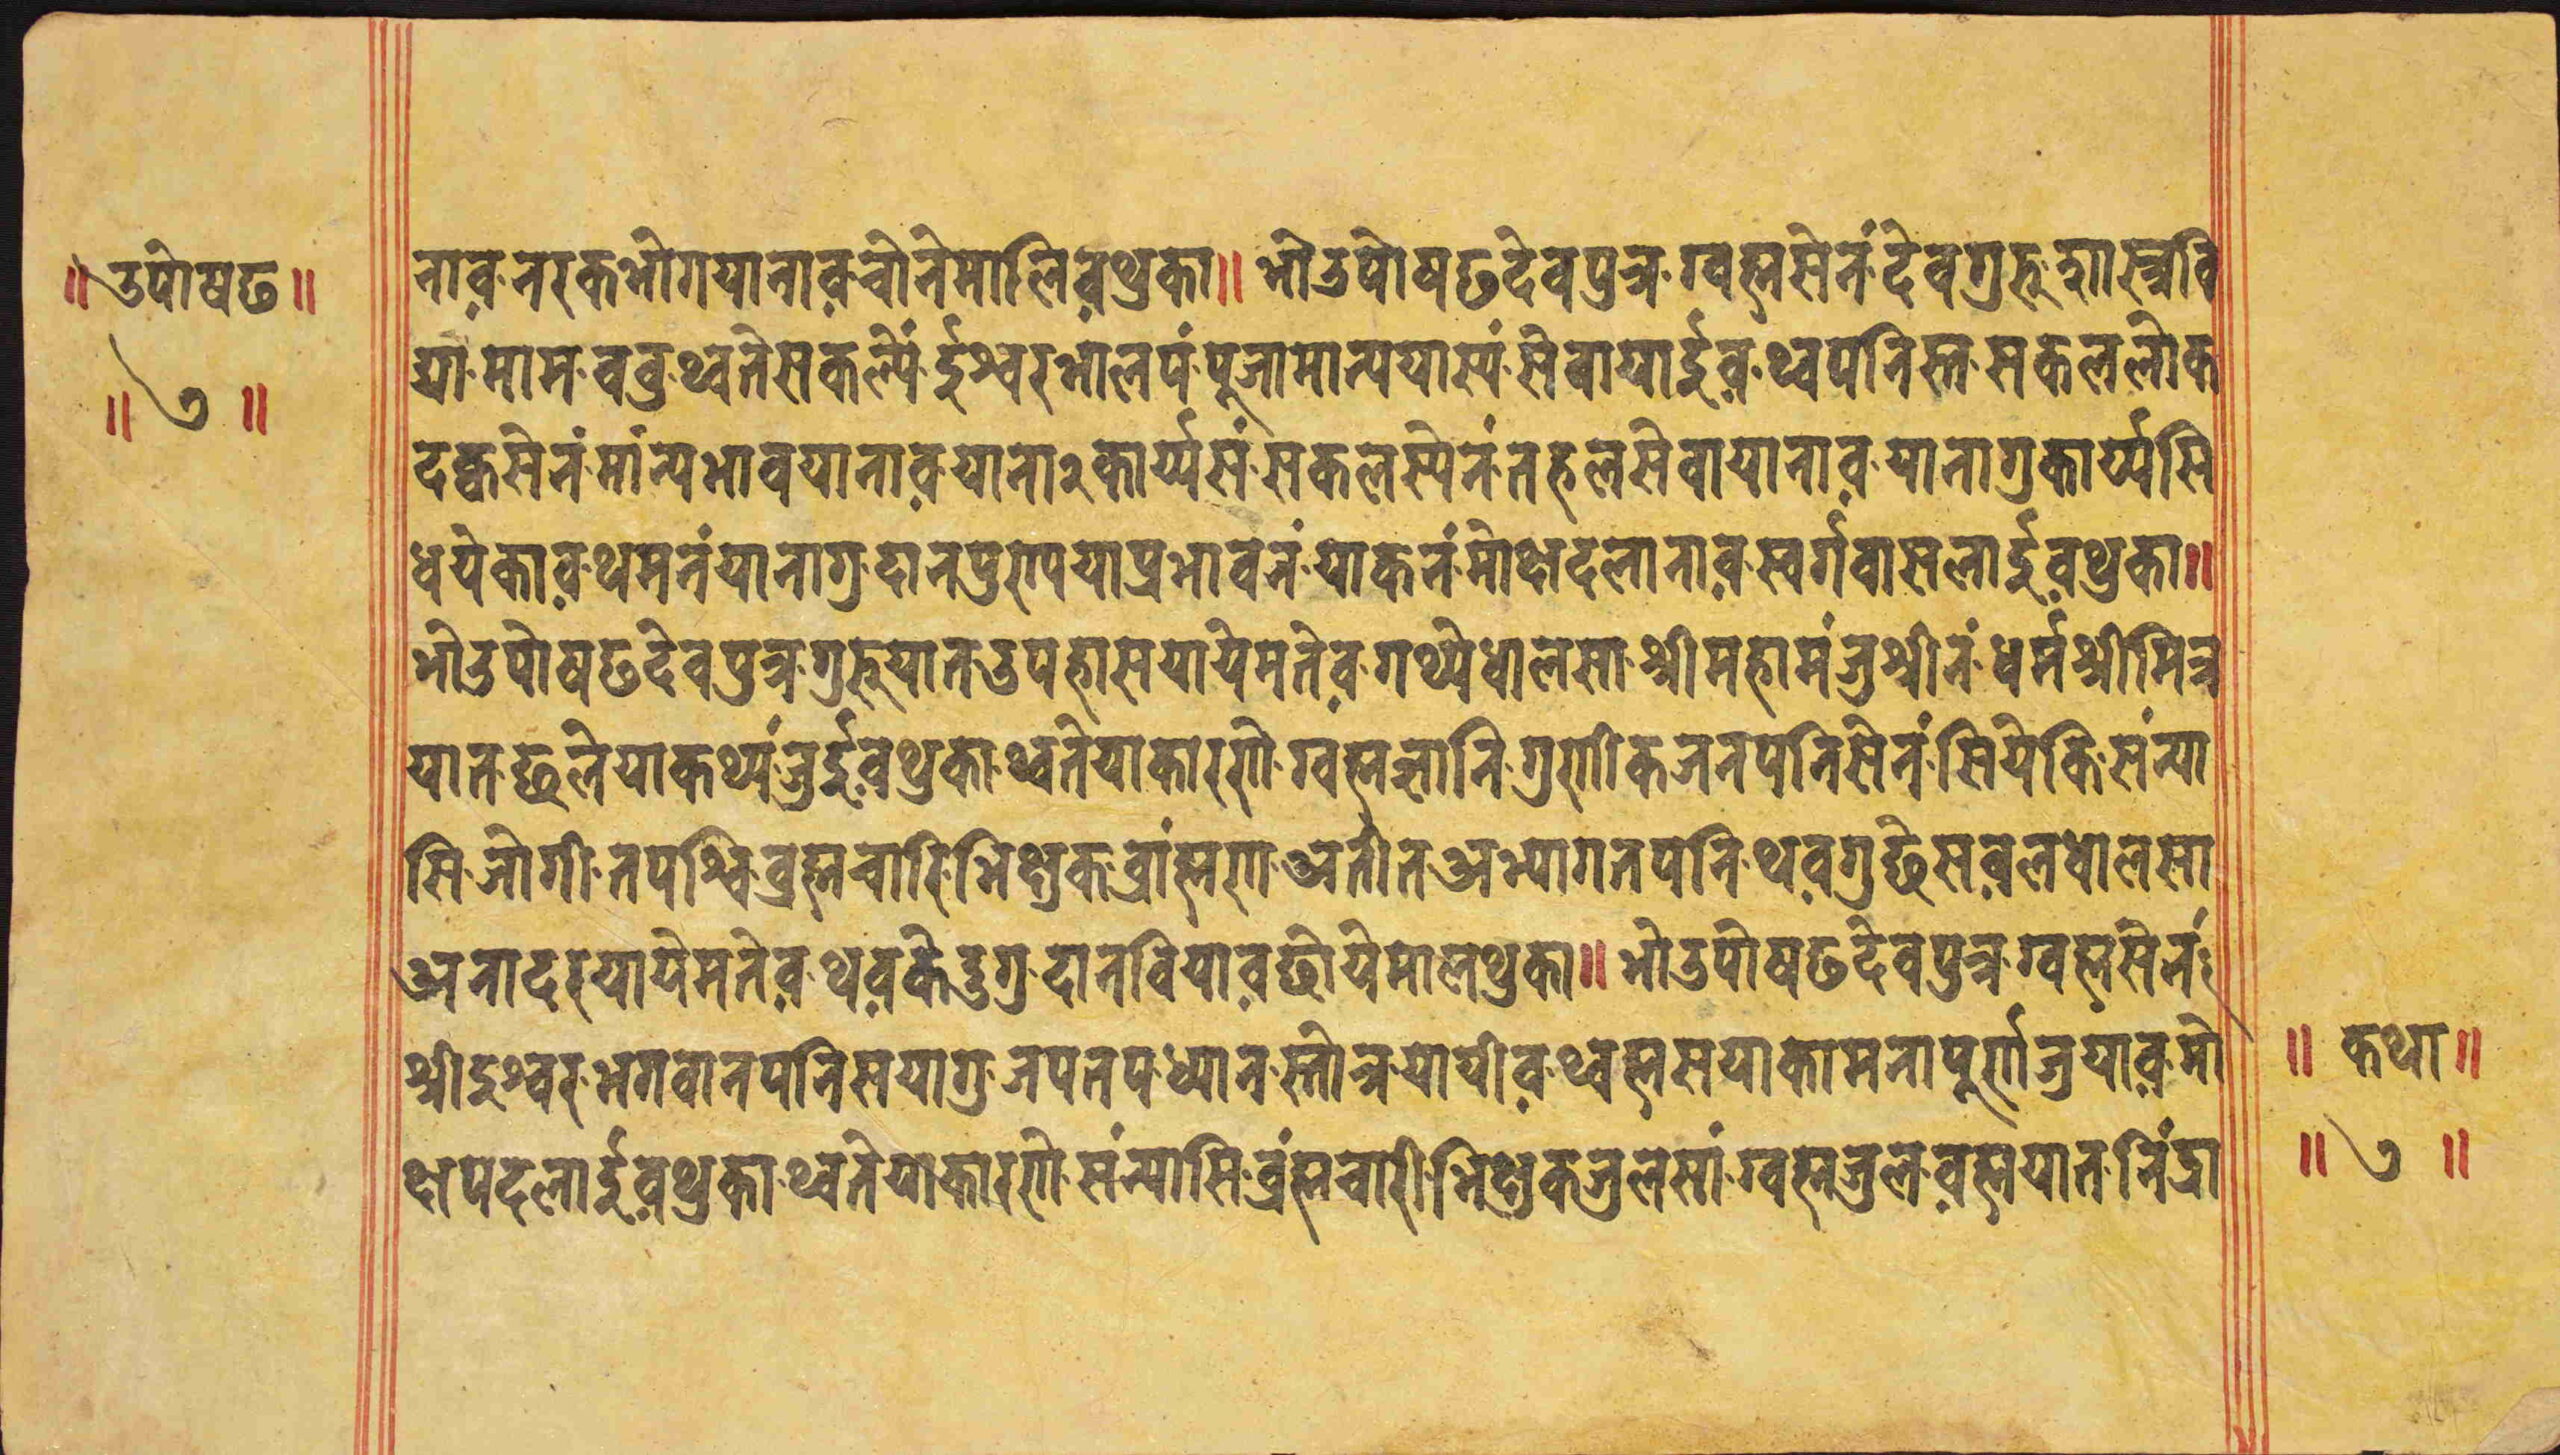 ॥ उपोषढ ॥
॥ ७ ॥
नाव़·नरकभोगयानाव़·चोनेमालिव़थुका॥ भोउपोषढदेवपुत्र·ग्वह्मसेनं·देवगुरु·शास्त्रवि
द्या·माम·ववु·थ्वतेसकल्येंं·ईश्वरभालपं·पूजामान्ययास्यं·सेवायाईव़·थ्वपनिस्त·सकललोक
दक्वसेनं·मांन्यभावयानाव़·यानार२कार्य्यसं·सकलस्येनं·तहलसेवायानाव़·यानागुकार्य्यसि
धयेकाव़·थमनंयानागु·दानपुण्ययाप्रभावनं·याकनंमोक्षदलानाव़·स्वर्गवासलाईव़थुका॥
भोउपोषढदेवपुत्र·गुरुयात·उपहासयायेमतेव़·गथ्येधालसा·श्रीमहामंजुश्रीनं·धर्मश्रीमित्र
यात·छलेयाकथ्यं·जुईव़थुका·थ्वतेयाकारणे·ग्वह्मज्ञानि·गुणीकजनपनिसेनं·सियेकि·संन्या
सि·जोगी·तपश्वि·ब्रह्मचारि·भिक्षुक·ब्रांह्मण·अतीत·अभ्यागतपनि·थव़गुछेस·व़लधालसा
अनादरयायेमतेव़·थव़केदुगु·दानवियाव़छोयेमालथुका॥ भोउपोषढदेवपुत्र·ग्वह्मसेनं
श्रीइश्वर·भगवानपनिसयागु·जपतप·ध्यान·स्तोत्र·यायीव़·थ्वह्मसयाकामनापूर्णजुयाव़·मो
क्षपदलाईव़थुका·थ्वतेयाकारणे·संन्यासि·ब्रंह्मचारी·भिक्षुकजुलसां·ग्वह्मजुल·व़ह्मयात·निंद्रा
॥ कथा ॥
॥ ७ ॥